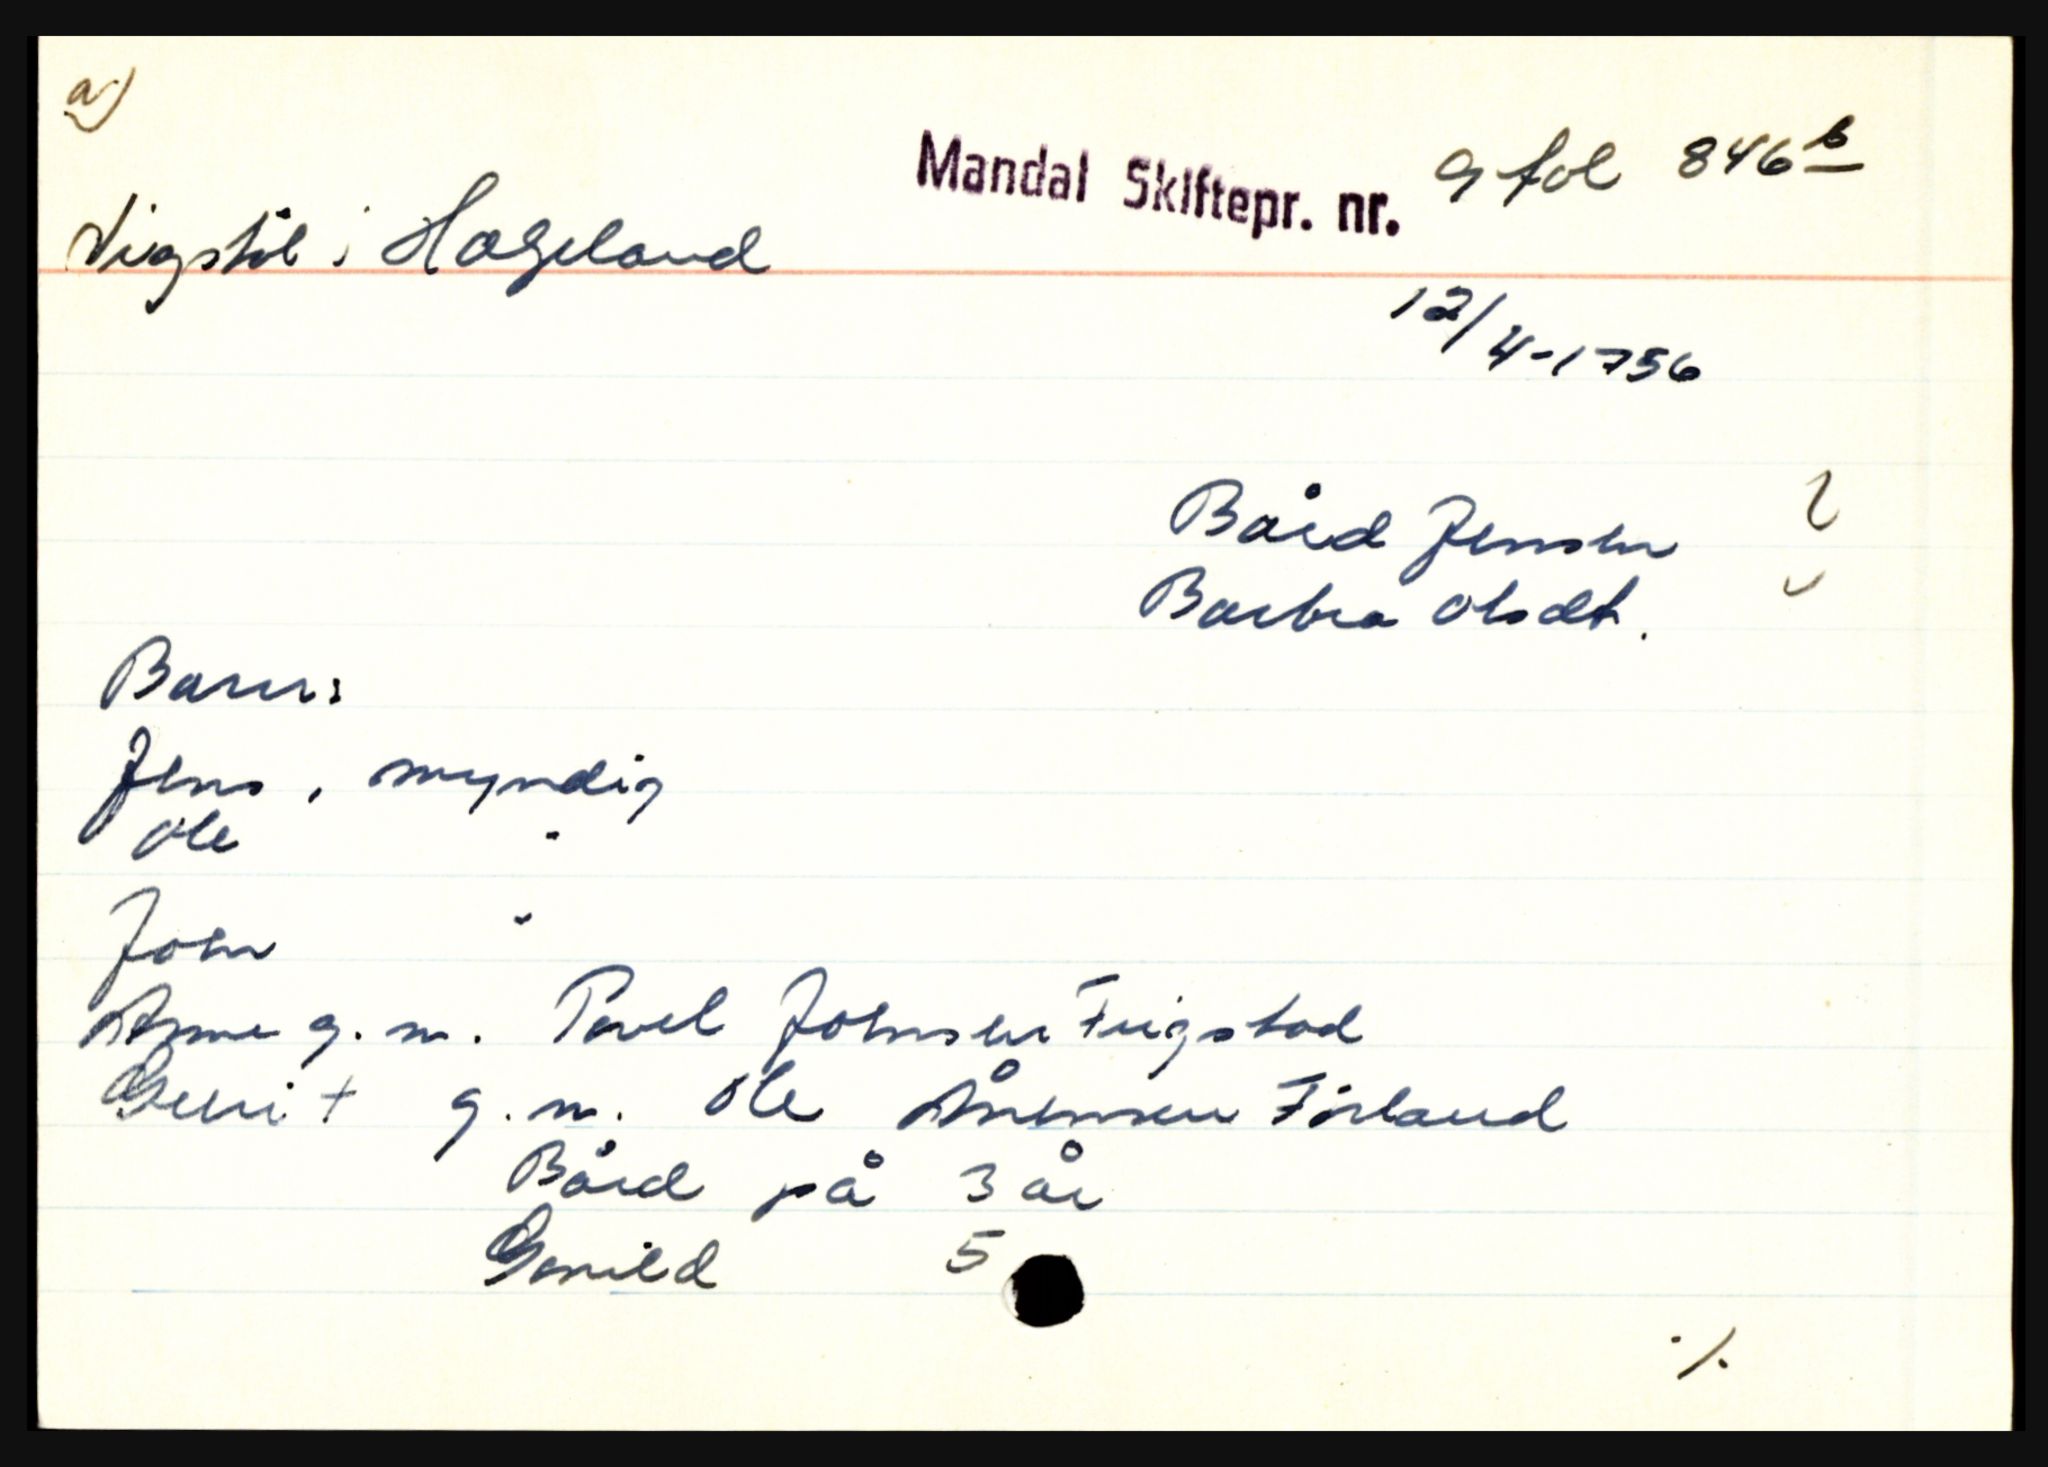 a)
Mandal Skiftepr. nr. 9 fol 846 b
Vigstöl i Hægeland
12/4-1756
Bård Jensen
Barbra Olsdt.
Barn:
Jens, myndig
Ole "
John "
Anne g. m. Povel Johnsen Frigstad
Guri + g. m. Ole Ånensen Förland
Bård på 3 år
Gonild 5
./.